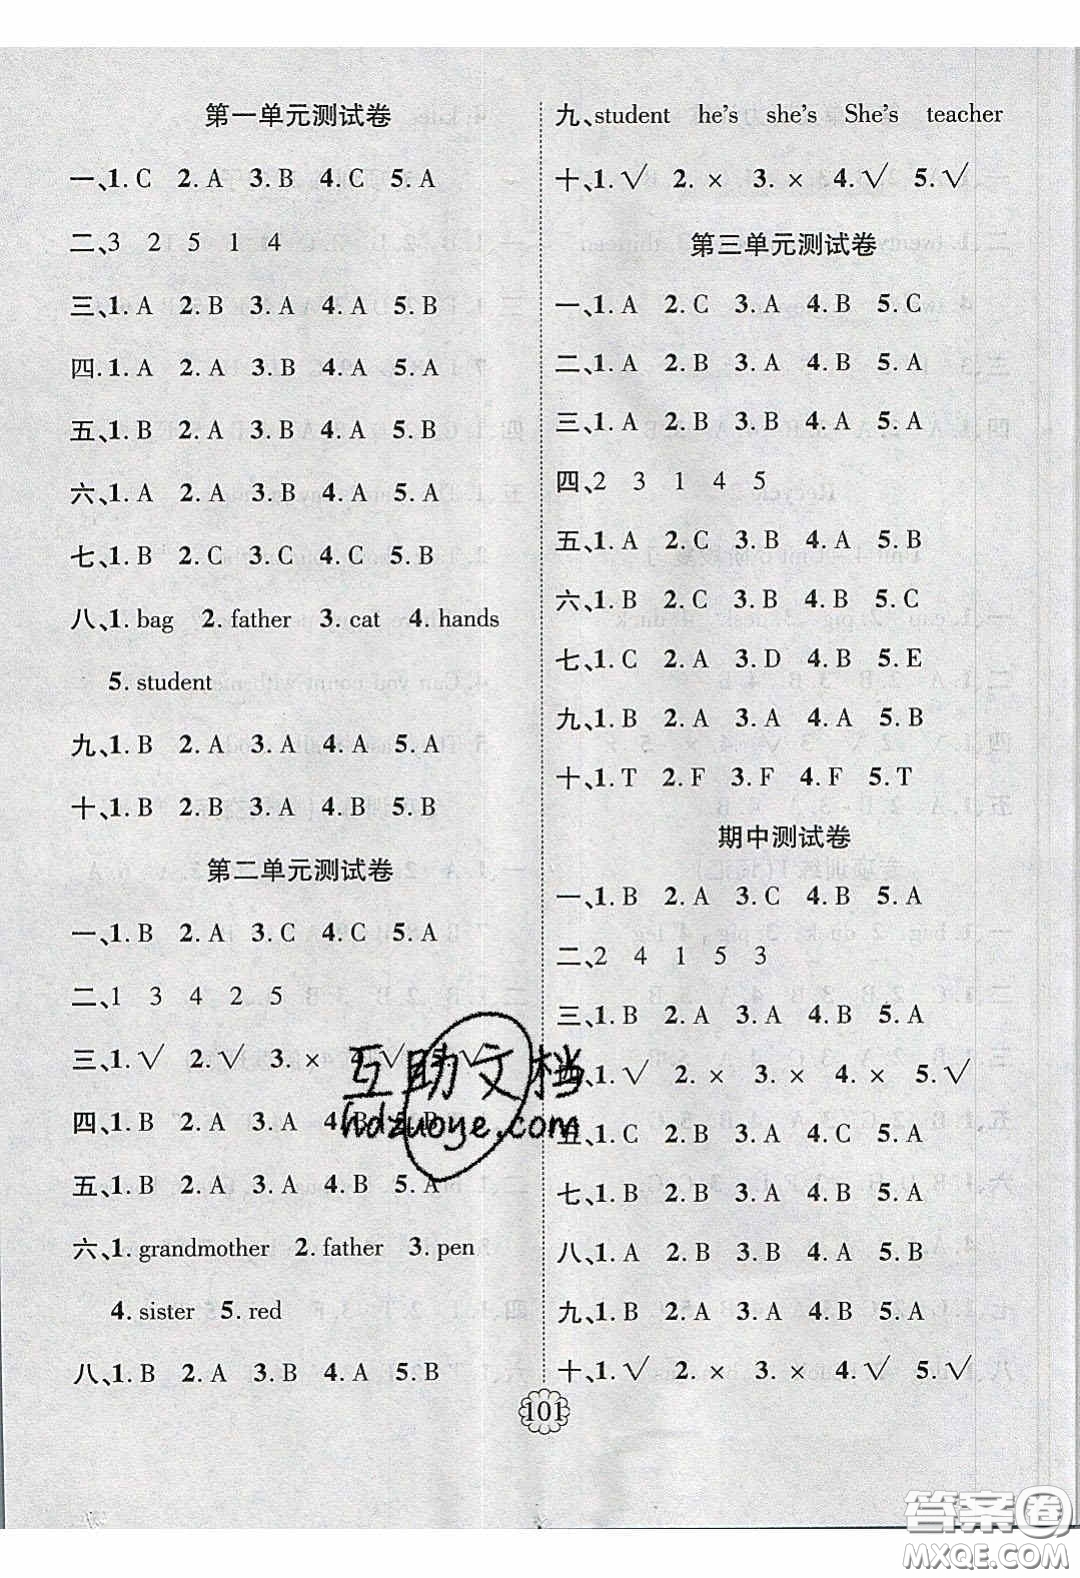 第一单元测试卷
一、1. C 2. A 3. B 4. C 5. A
二、3 2 5 1 4
三、1. A 2. B 3. A 4. A 5. B
四. 1. A 2. A 3. B 4. A 5. A
五、1. B 2. A 3. B 4. A 5. B
六、1. A 2. A 3. B 4. A 5. A
七、1. B 2. C 3. C 4. C 5. B
八、1. bag 2. father 3. cat 4. hands
5. student
九、1. B 2. A 3. A 4. A 5. A
十、1. B 2. B 3. A 4. B 5. B
第二单元测试卷
一、1. B 2. A 3. C 4. C 5. A
二、1 3 4 2 5
三、1. √ 2. √ 3. × 4. √ 5. √
四、1. B 2. A 3. A 4. B 5. B
五、1. B 2. A 3. A 4. B 5. A
六、1. grandmother 2. father 3. pen
4. sister 5. red
八、1. B 2. A 3. B 4. A 5. B
九、student he's she's She's teacher
十、1. √ 2. × 3. × 4. √ 5. √
第三单元测试卷
一、1. A 2. C 3. A 4. B 5. C
二、1. A 2. A 3. B 4. B 5. A
三、1. A 2. B 3. B 4. A 5. A
四、2 3 1 4 5
五、1. A 2. C 3. B 4. A 5. B
六、1. B 2. C 3. B 4. B 5. C
七、1. C 2. A 3. D 4. B 5. E
九、1. B 2. A 3. B 4. A 5. B
十、1. T 2. F 3. F 4. F 5. T
期中测试卷
一、1. B 2. A 3. C 4. B 5. A
二、2 4 1 5 3
三、1. B 2. A 3. A 4. B 5. A
四、1. √ 2. × 3. × 4. × 5. √
五、1. C 2. B 3. A 4. C 5. A
七、1. B 2. B 3. A 4. B 5. A
八、1. A 2. B 3. B 4. A 5. B
九、1. B 2. A 3. A 4. B 5. A
十、1. √ 2. × 3. × 4. √ 5. √
101
互助文档
hdzuoye.com
答案卷
MXQE.COM